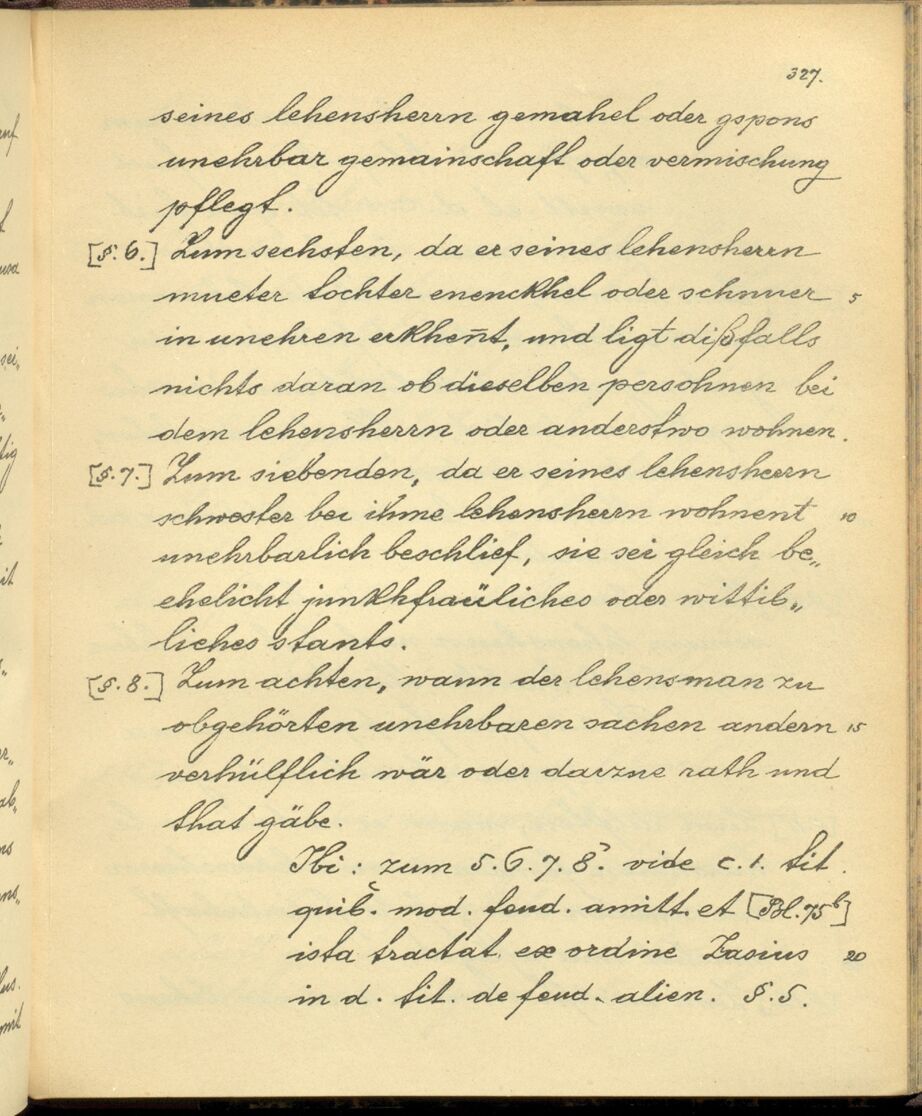 327.
seines lehensherrn gemahel oder gspons
unehrbar gemainschaft oder vermischung
pflegt.
[§. 6.] Zum sechsten, da er seines lehensherrn
mueter tochter enenckhel oder schnuer 5
in unehren erkhen̄t, und ligt dißfalls
nichts daran ob dieselben persohnen bei
dem lehensherrn oder anderstwo wohnen.
[§. 7.] Zum siebenden, da er seines lehensherrn
schwester bei ihme lehensherrn wohnent 10
unehrbarlich beschlief, sie sei gleich be„
ehelicht junkhfraüliches oder wittib„
liches stants.
[§. 8.] Zum achten, wann der lehensman zu
obgehörten unehrbaren sachen andern 15
verhülflich wär oder darzue rath und
that gäbe.
Ibi: zum 5. 6. 7. 8. vide c. 1. tit.
quib. mod. feud. amitt. et [Bl. 75b]
ista tractat ex ordine Zasius 20
in d. tit. de feud. alien. §. 5.